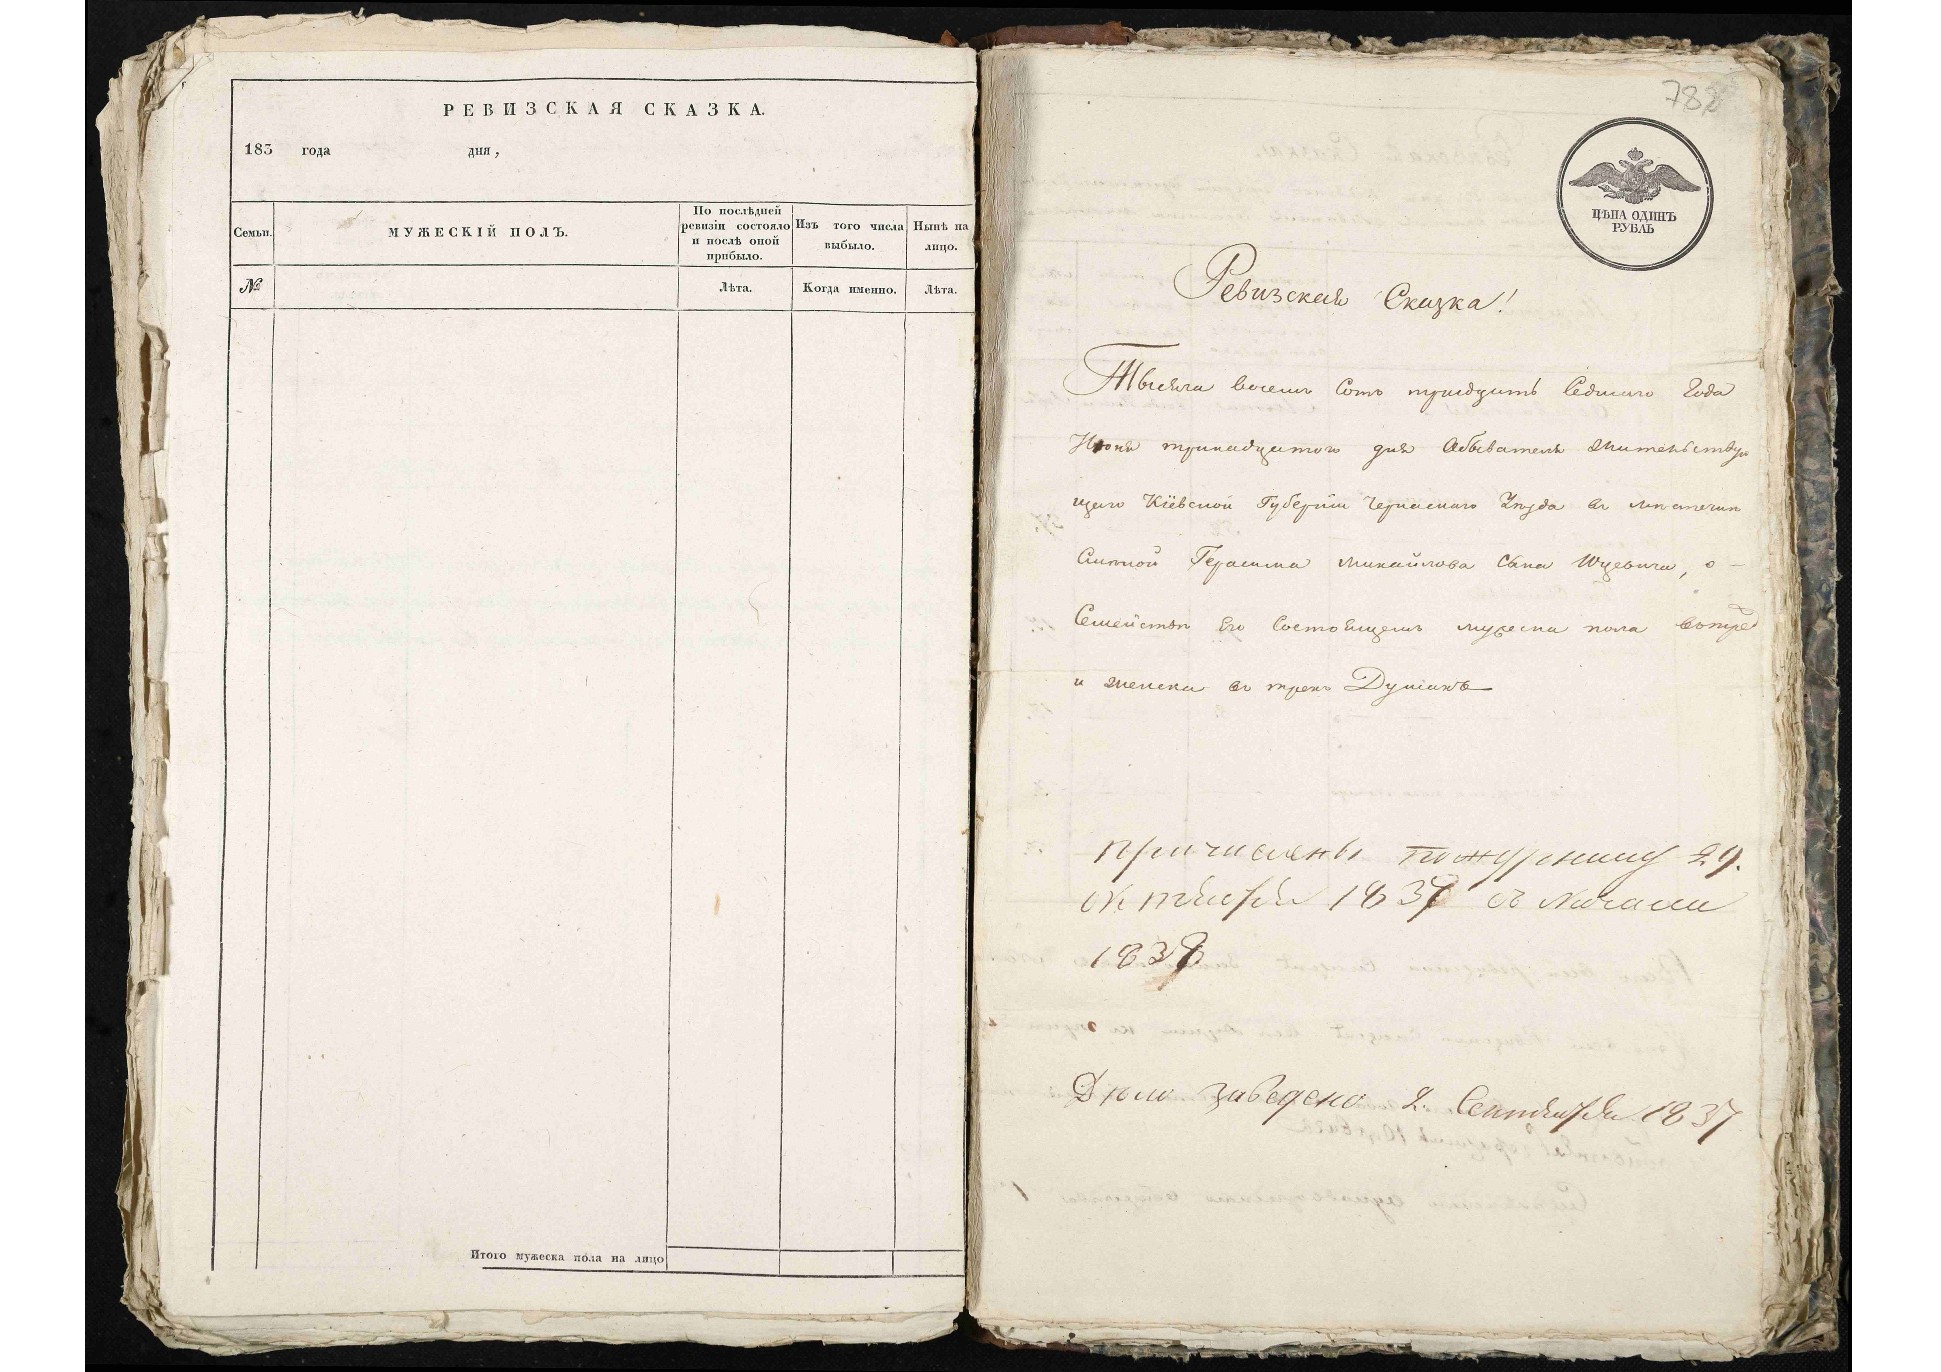 РЕВИЗСКАЯ СКАЗКА.
183 года дня,
Семьи.
МУЖЕСКІЙ ПОЛЪ.
По послѣдней
ревизіи состояло
и послѣ оной
прибыло.
Изъ того числа
выбыло.
Нынѣ на
лицо.
№
Лѣта.
Когда именно.
Лѣта.
Итого мужеска пола на лицо
788
ЦѢНА ОДИНЪ
РУБЛЬ
Ревизская Сказка!
Тысяча восемь Сотъ тридцать Седмаго Года
Июня тринадцатого дня Обывателя жительству
щаго Кіевской Губерніи Черкаского Уѣзда въ мѣстечкѣ
Смѣлой Герасима Михайлова Сына Юцевича, о
Семействѣ Его Состоящемъ мужеска пола
и женска въ трехъ Душахъ
причислены по журналу 29.
октября 1837 съ начала
1838
Дѣло заведено 2. Сентября 1837